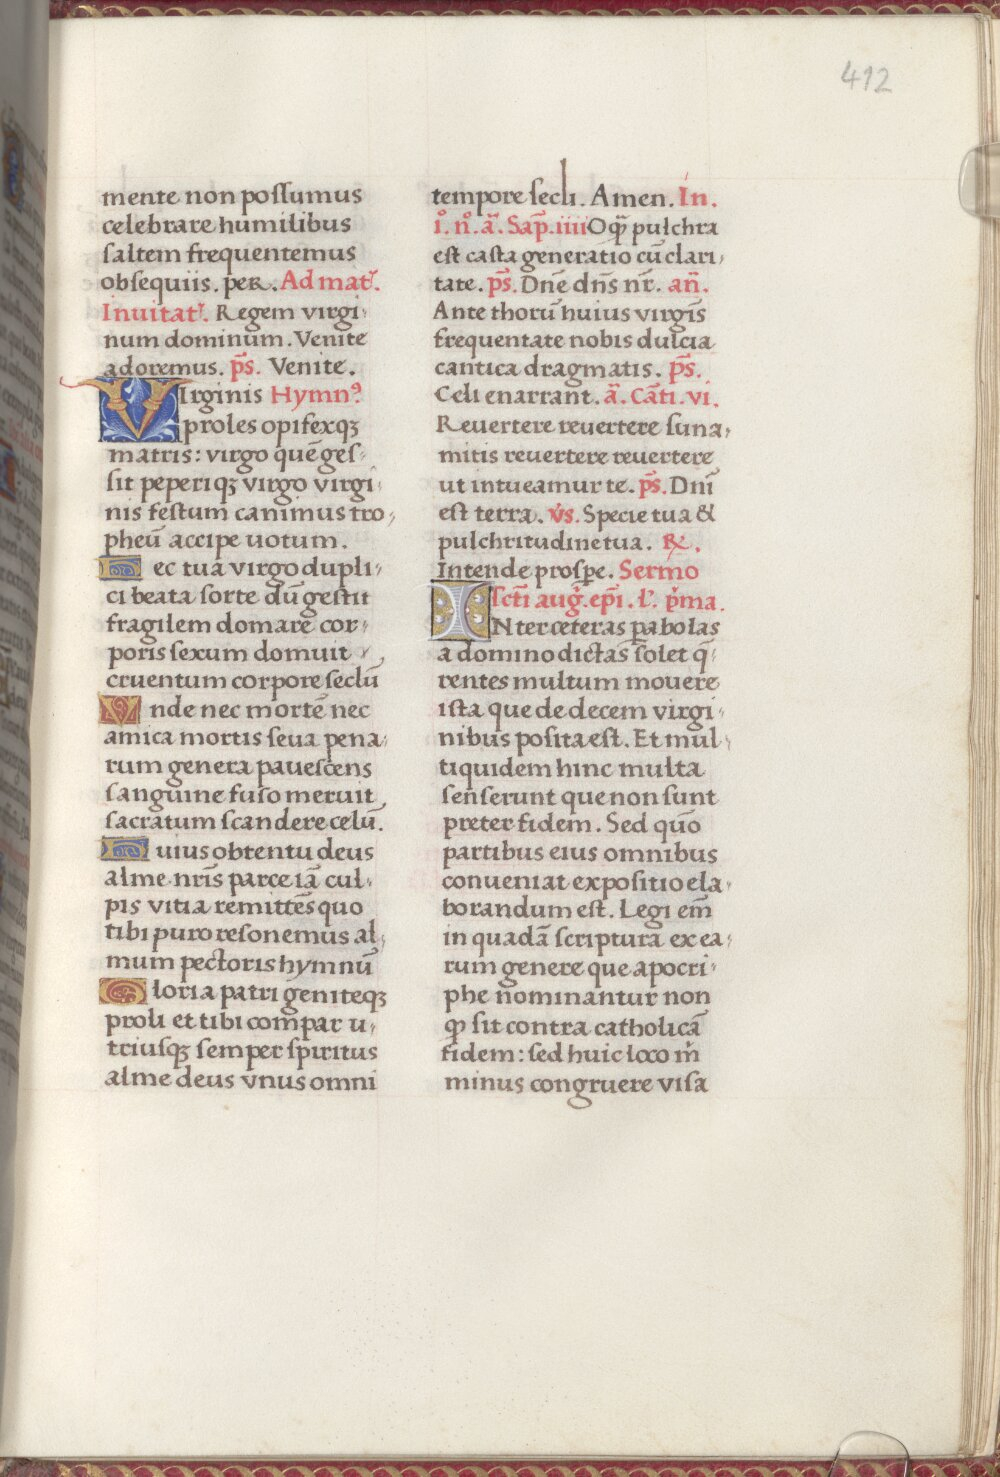 412
mente non possumus
celebrare humilibus
saltem frequentemus
obsequiis. per. Ad mat᷑.
Inuitat᷑. Regem virgi-
num dominum. Venite
adoremus. p̄s. Venite.
VIrginis Hymnꝰ
proles opifexqꝫ
matris: virgo quē ges-
sit peperiqꝫ virgo virgi-
nis festum canimus tro-
pheū accipe uotum.
Hec tua virgo dupli-
ci beata sorte dū gestit
fragilem domare cor-
poris sexum domuit
cruentum corpore seclū
Vnde nec mortē nec
amica mortis seua pena-
rum genera pauescens
sanguine fuso meruit
sacratum scandere celū.
Huius obtentu deus
alme nr̄is parce iā cul-
pis vitia remittēs quo
tibi puro resonemus al-
mum pectoris hymnū
Gloria patri geniteqꝫ
proli et tibi compar u-
triusqꝫ semper spiritus
alme deus vnus omni
tempore secli. Amen. In.
i͛. n͛. a͛. Sap̄. iiii O qꝫ̄ pulchra
est casta generatio cū clari-
tate. p̄s. Dn̄e dn̄s nr̄. an̄.
Ante thorū huius virgīs
frequentate nobis dulcia
cantica dragmatis. p̄s.
Celi enarrant. ā. Cāti. vi.
Reuertere reuertere suna-
mitis reuertere reuertere
ut intueamur te. p̄s. Dn̄i
est terra. v̇s. Specie tua &
pulchritudine tua. ℟.
Intende prospe. Sermo
sc̄ti auḡ. ep̄i. l'. p̓ma.
INter ceteras pabolas
a domino dictas solet q̄-
rentes multum mouere
ista que de decem virgi-
nibus posita est. Et mul-
ti quidem hinc multa
senserunt que non sunt
preter fidem. Sed quō
partibus eius omnibus
conueniat expositio ela-
borandum est. Legi em̄
in quadā scriptura ex ea-
rum genere que apocri-
phe nominantur non
ꝙ sit contra catholicā
fidem: sed huic loco m̓
minus congruere visa